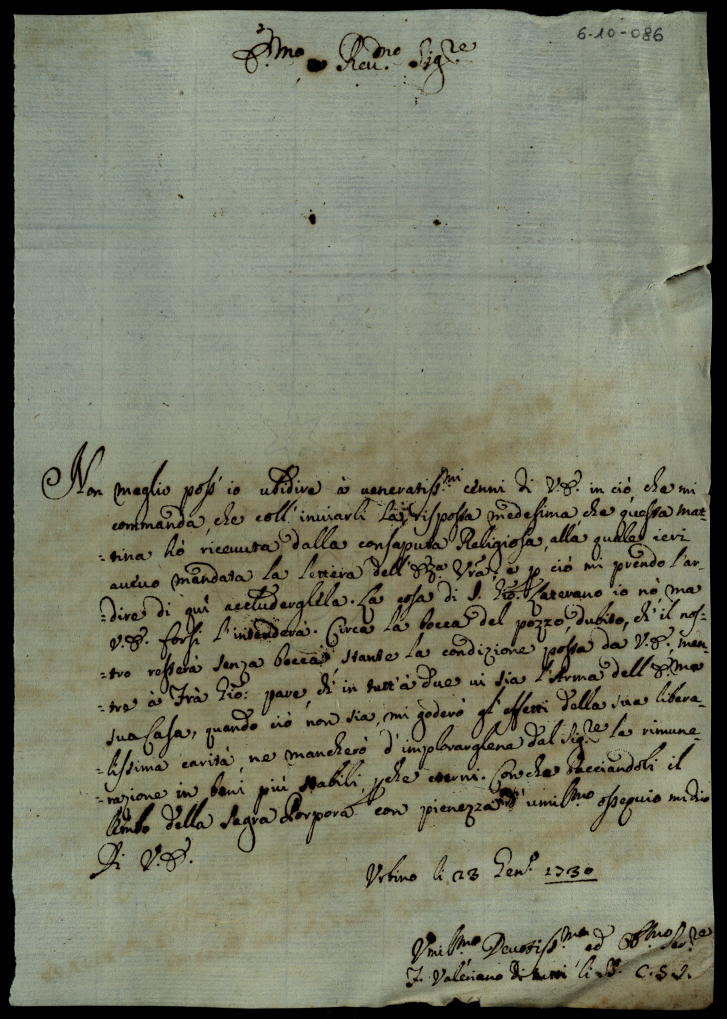 6-10-086
E.mo e Reu.mo Sig.re
Non meglio poss' io ubidire à ueneratiss.mi cenni di V.E. in ciò, che mi
commanda, che coll' inuiarli la risposta medesima, che questa mat-
-tina hò riceuuta dalla consaputa Religiosa, alla quale ieri
aueuo mandata la lettera dell' E.za Vra, e p ciò mi prendo l'ar-
-dire di quì accluderglela. La cosa di S. Gio: Laterano io nõ, ma
V.E. forsi l'intenderà. Circa la bocca del pozzo, dubito, ch' il nos-
-tro resterà senza bocca, stante la condizione posta da V.E. men-
-tre à Frà Gio: pare, ch' in tutt' à due ui sia l'Arma dell' E.ma
sua Casa, quando ciò non sia, mi goderò gl' effetti della sua libera-
-lissima carità, ne mancherò d' implorarglene dal Sig.re la rimune-
-razione in beni più stabili, pche eterni. Con che bacciandoli il
lembo della Sagra Porpora con pienezza d' umil.mo ossequio mi dico
Di V.E.
Urbino li 23 Gen.o 1730
Umil.mo Deuotiss.mo ed Obb.mo Ser.re
F. Valeriano di tutti li SS. C.S.